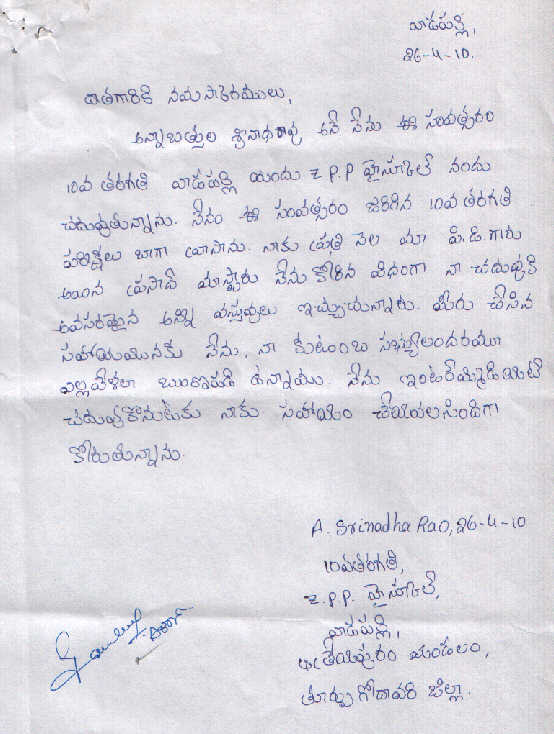 వాడపల్లి,
26-4-10.
దాతగారికి నమస్కారములు,
అన్నాబత్తుల శ్రీనాధరావు అనే నేను ఈ సంవత్సరం
10వ తరగతి వాడపల్లి యందు Z P.P హైస్కూల్ నందు
చదువుతున్నాను. నేను ఈ సంవత్సరం జరిగిన 10వ తరగతి
పరీక్షలు బాగా వ్రాసాను. నాకు ప్రతి నెల మా పి.డి.గారు
అయిన ప్రసాద్ మాస్టారు నేను కోరిన విధంగా నా చదువుకి
అవసరమైన అన్ని వస్తువులు ఇచ్చుచున్నారు. మీరు చేసిన
సహాయమునకు నేను, నా కుటుంబ సభ్యులందరమూ
ఎల్లవేళలా బుణపడి ఉన్నాము. నేను ఇంటర్మీడియట్
చదువుకొనుటకు నాకు సహాయం చేయవలసిందిగా
కోరుతున్నాను.
A. Srinadha Rao, 26-4-10
10వతరగతి,
Z.P.P. హైస్కూల్,
వాడపల్లి,
ఆత్రేయపురం మండలం,
తూర్పు గోదావరి జిల్లా.